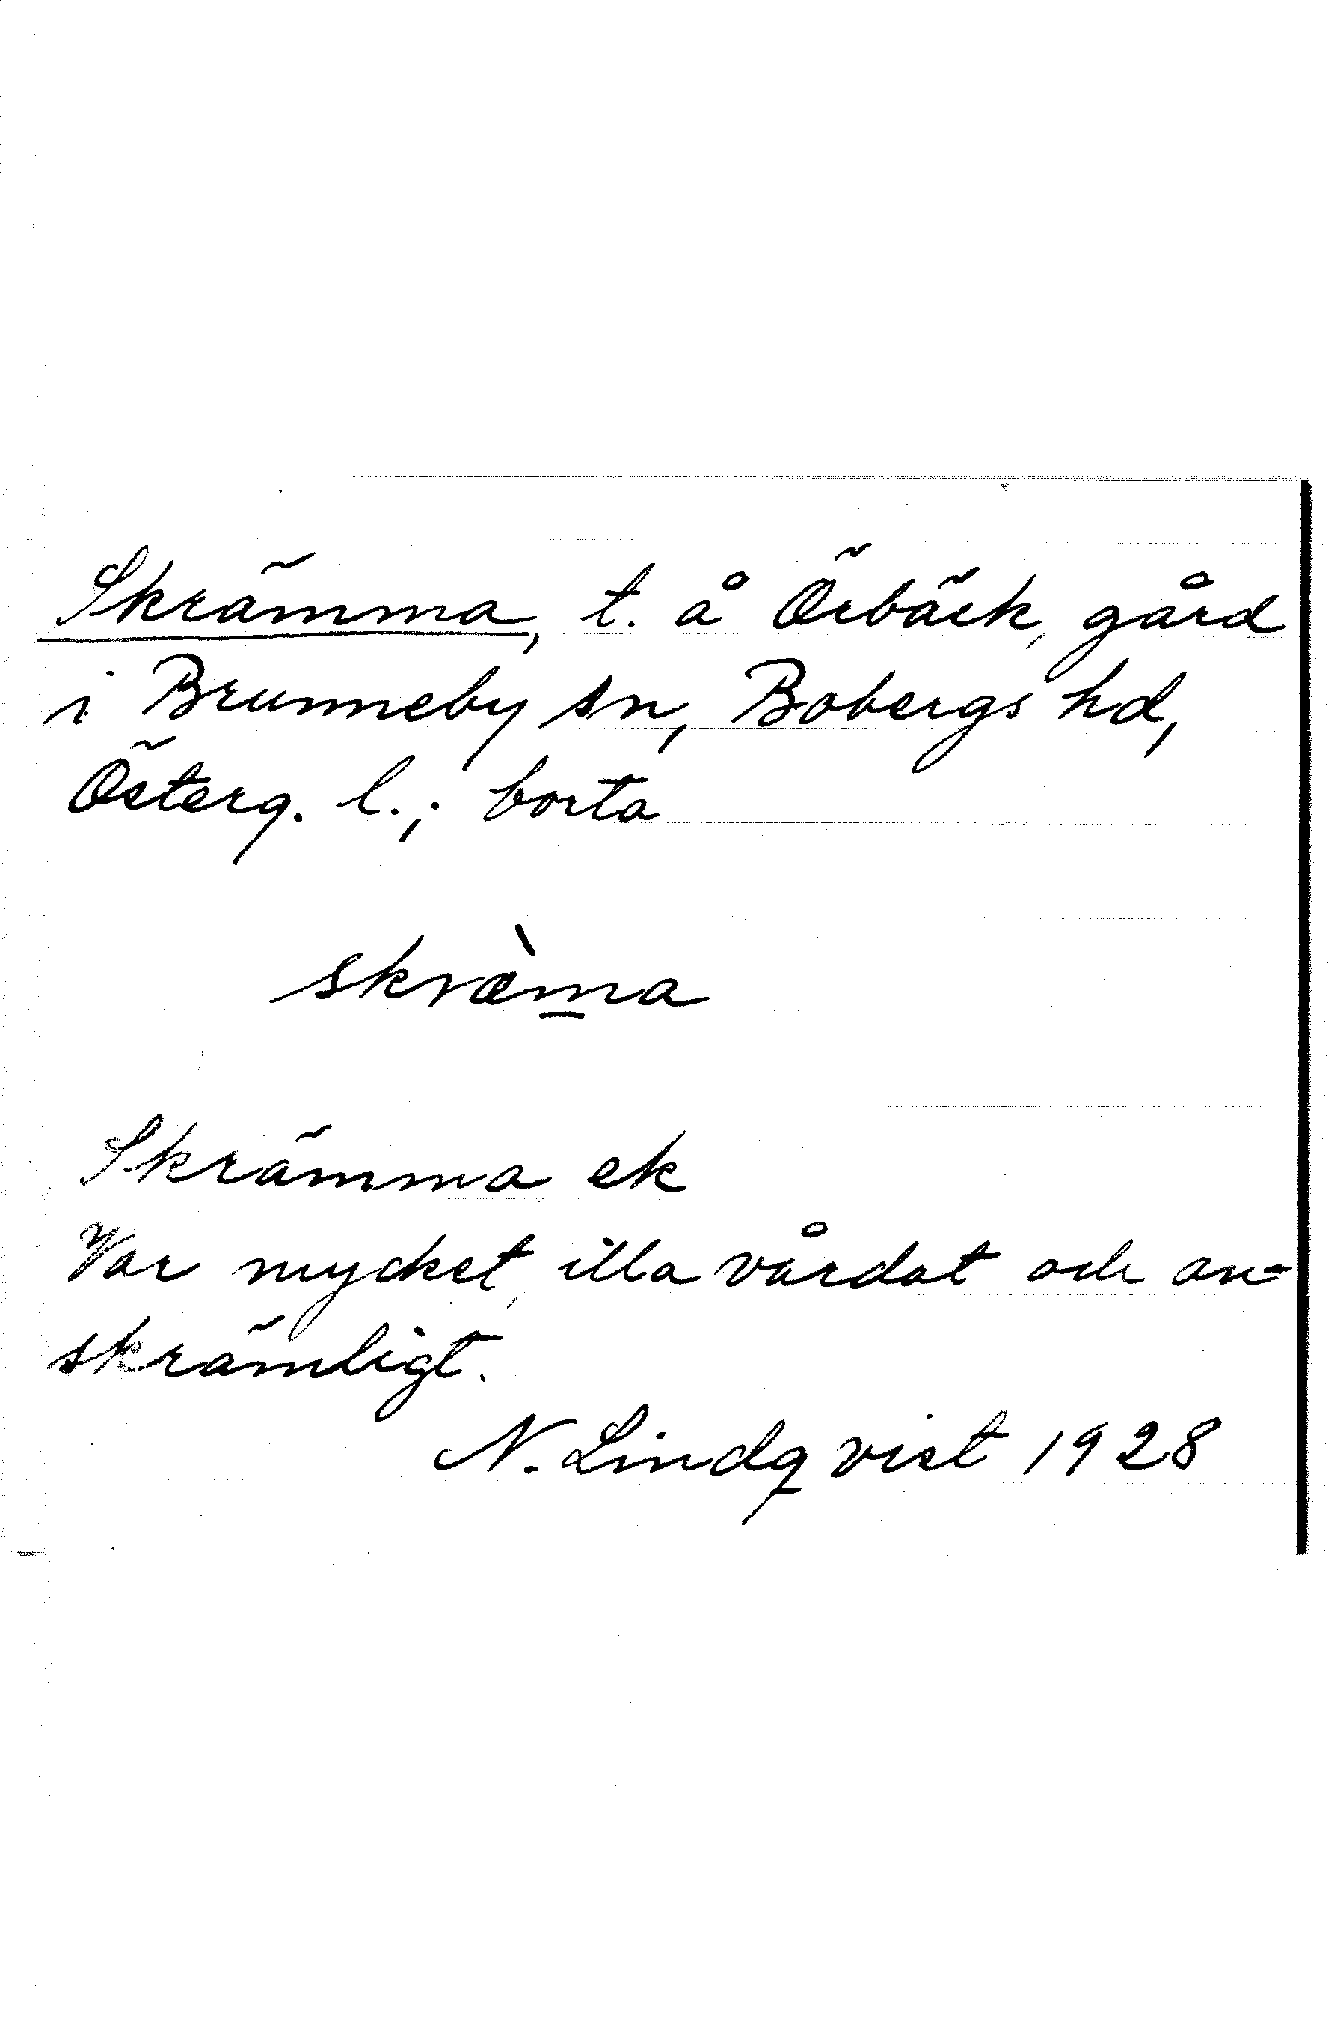 Skrämma, t. å Örbäck, gård
i Brunneby sn, Bobergs hd,
Österg. l.; borta
skræ̀m̲a
Skrämma ek
Var mycket illa vårdat och an-
skrämligt.
N. Lindqvist 1928